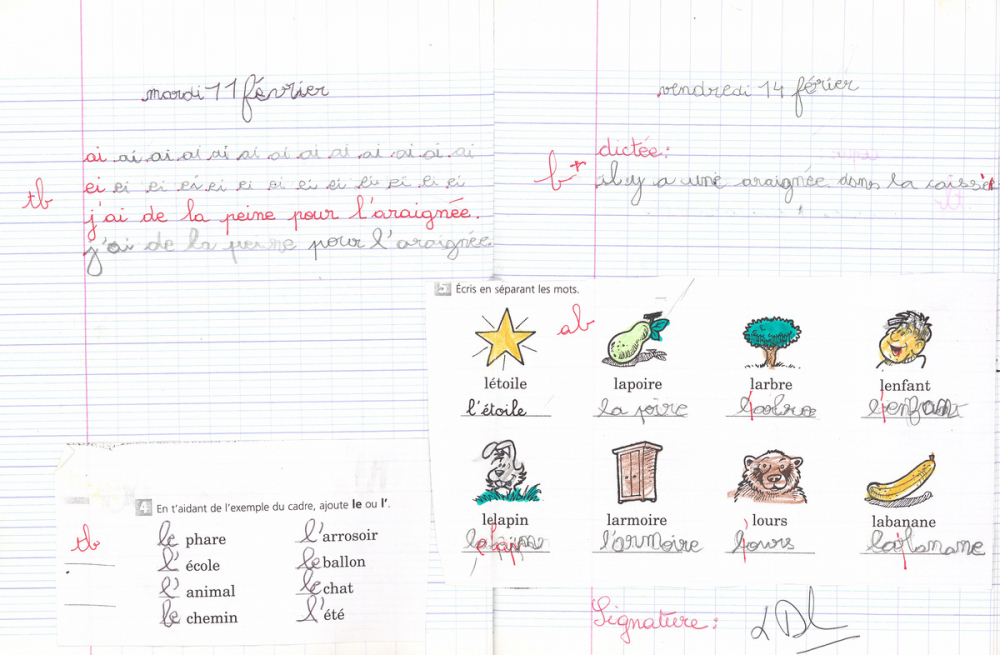 mardi 11 février
ai ai ai ai ai ai ai ai ai ai ai ai ai
tb
ei ei ei ei ei ei ei ei ei ei ei ei ei
j'ai de la peine pour l'araignée.
j'ai de la peine pour l'araignée
4 En t'aidant de l'exemple du cadre, ajoute le ou l'.
tb
le phare l'arrosoir
l'école le ballon
l'animal le chat
le chemin l'été
vendredi 14 férier
dictée:
b+ il y a une araignée dans la caisse
5 Écris en séparant les mots.
ab
létoile lapoire larbre lenfant
l'étoile la poire l'arbre l'enfant
lelapin larmoire lours labanane
l'armoire l'ours la banane
Signature: